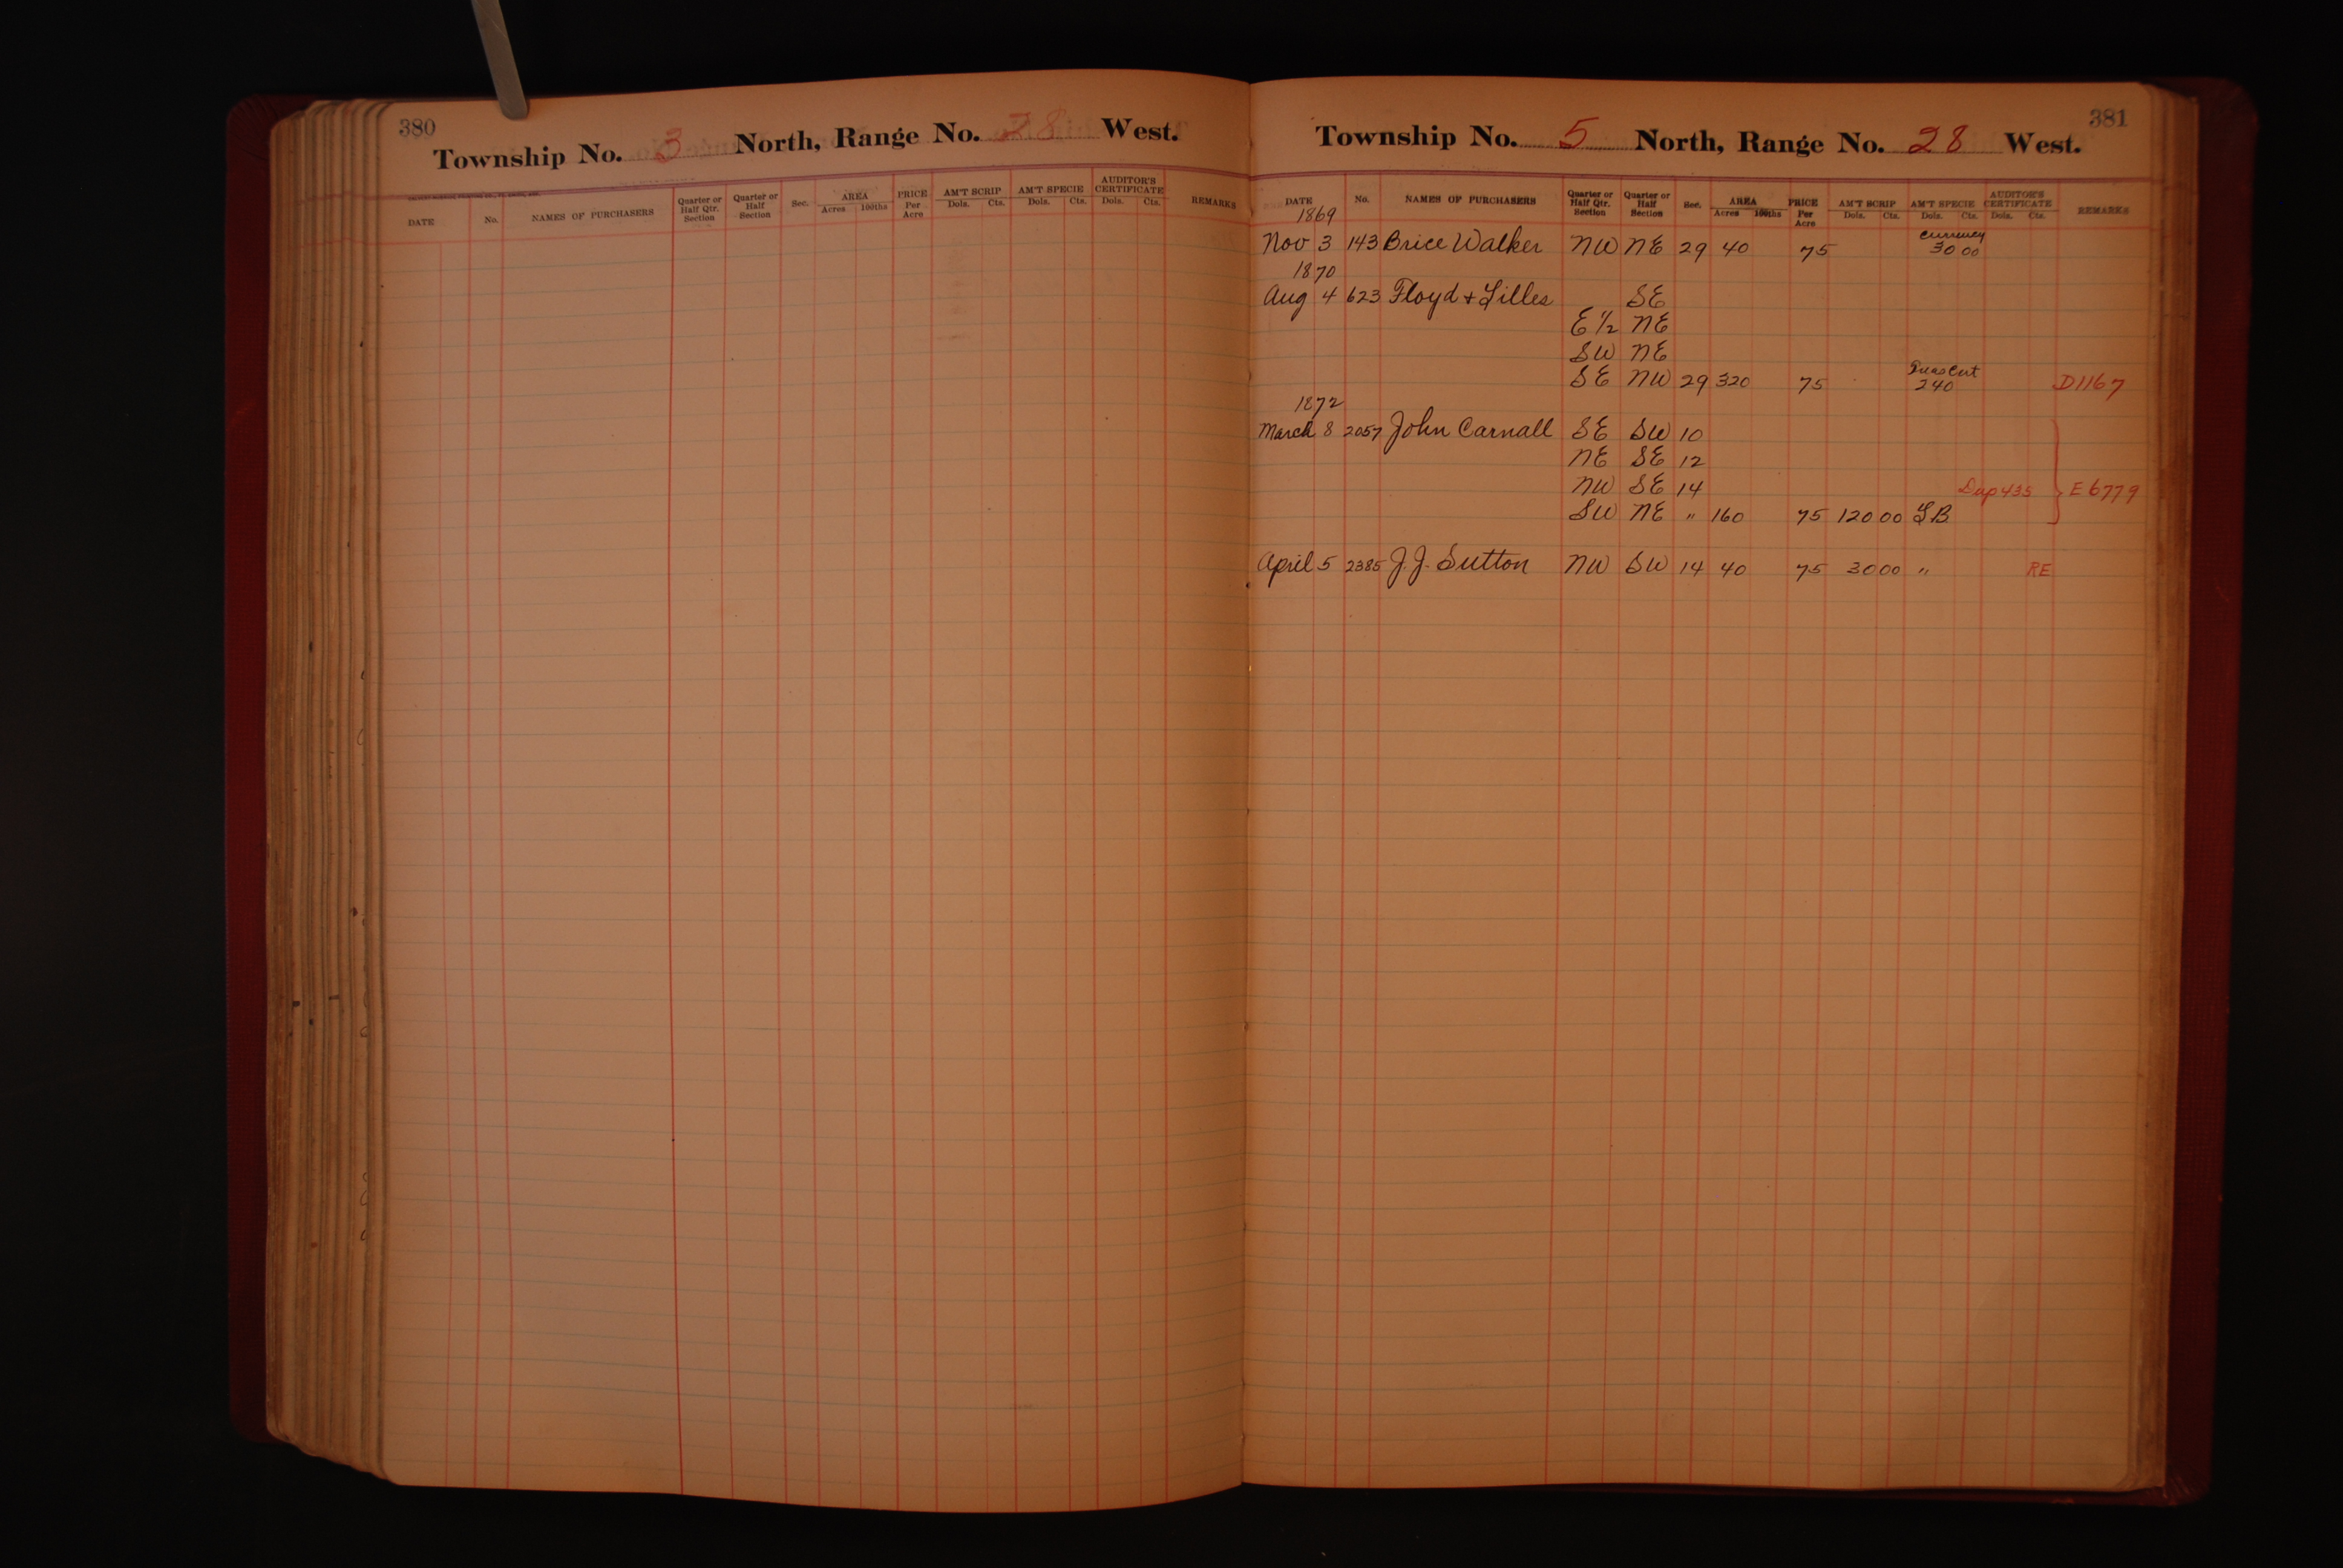 380
Township No. 3 North, Range No. 28 West.
DATE No. NAMES OF PURCHASERS Quarter or Half Qtr. Section Quarter or Half Section Sec. AREA Acres 100ths PRICE Per Acre AM'T SCRIP Dols. Cts. AM'T SPECIE Dols. Cts. AUDITOR'S CERTIFICATE Dols. Cts. REMARKS
381
Township No. 5 North, Range No. 28 West.
DATE No. NAMES OF PURCHASERS Quarter or Half Qtr. Section Quarter or Half Section Sec. AREA Acres 100ths PRICE Per Acre AM'T SCRIP Dols. Cts. AM'T SPECIE Dols. Cts. AUDITOR'S CERTIFICATE Dols. Cts. REMARKS
1869
currency
Nov 3 143 Brice Walker NW NE 29 40 75 30 00
1870
Aug 4 623 Floyd + Lilles SE
E 1/2 NE
SW NE
SE NW 29 320 75 240 D1167
1872
March 8 2057 John Carnall SE SW 10
NE SE 12
NW SE 14 435 } E6779
SW NE " 160 75 120 00 LB
April 5 2385 J. J. Sutton NW SW 14 40 75 30 00 " RE